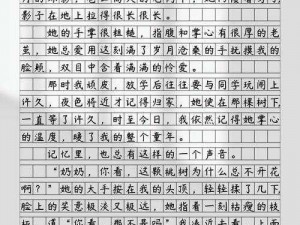 影子在地上拉得很长很长。
她的手掌很粗糙，指腹和掌心有很厚的老
茧，她总爱用这刻满了岁月沧桑的手抚摸我的
脸颊，双目中含着满满的怜爱。
那时我顽皮，放学后往往要与同学玩闹上
许久，夜色将近才记得归家，她便在那棵树下
一直等了许久，时至今日，我依然记得她掌心
的温度，暖了我的整个童年。
记忆里，也总有这样的一个声音。
“奶奶，你看，这颗桃树为什么总不开花
啊？”她的大手按在我的头顶，轻轻揉了几下，
脸上的笑意极淡又极远，她指着一刻枯瘦的枝